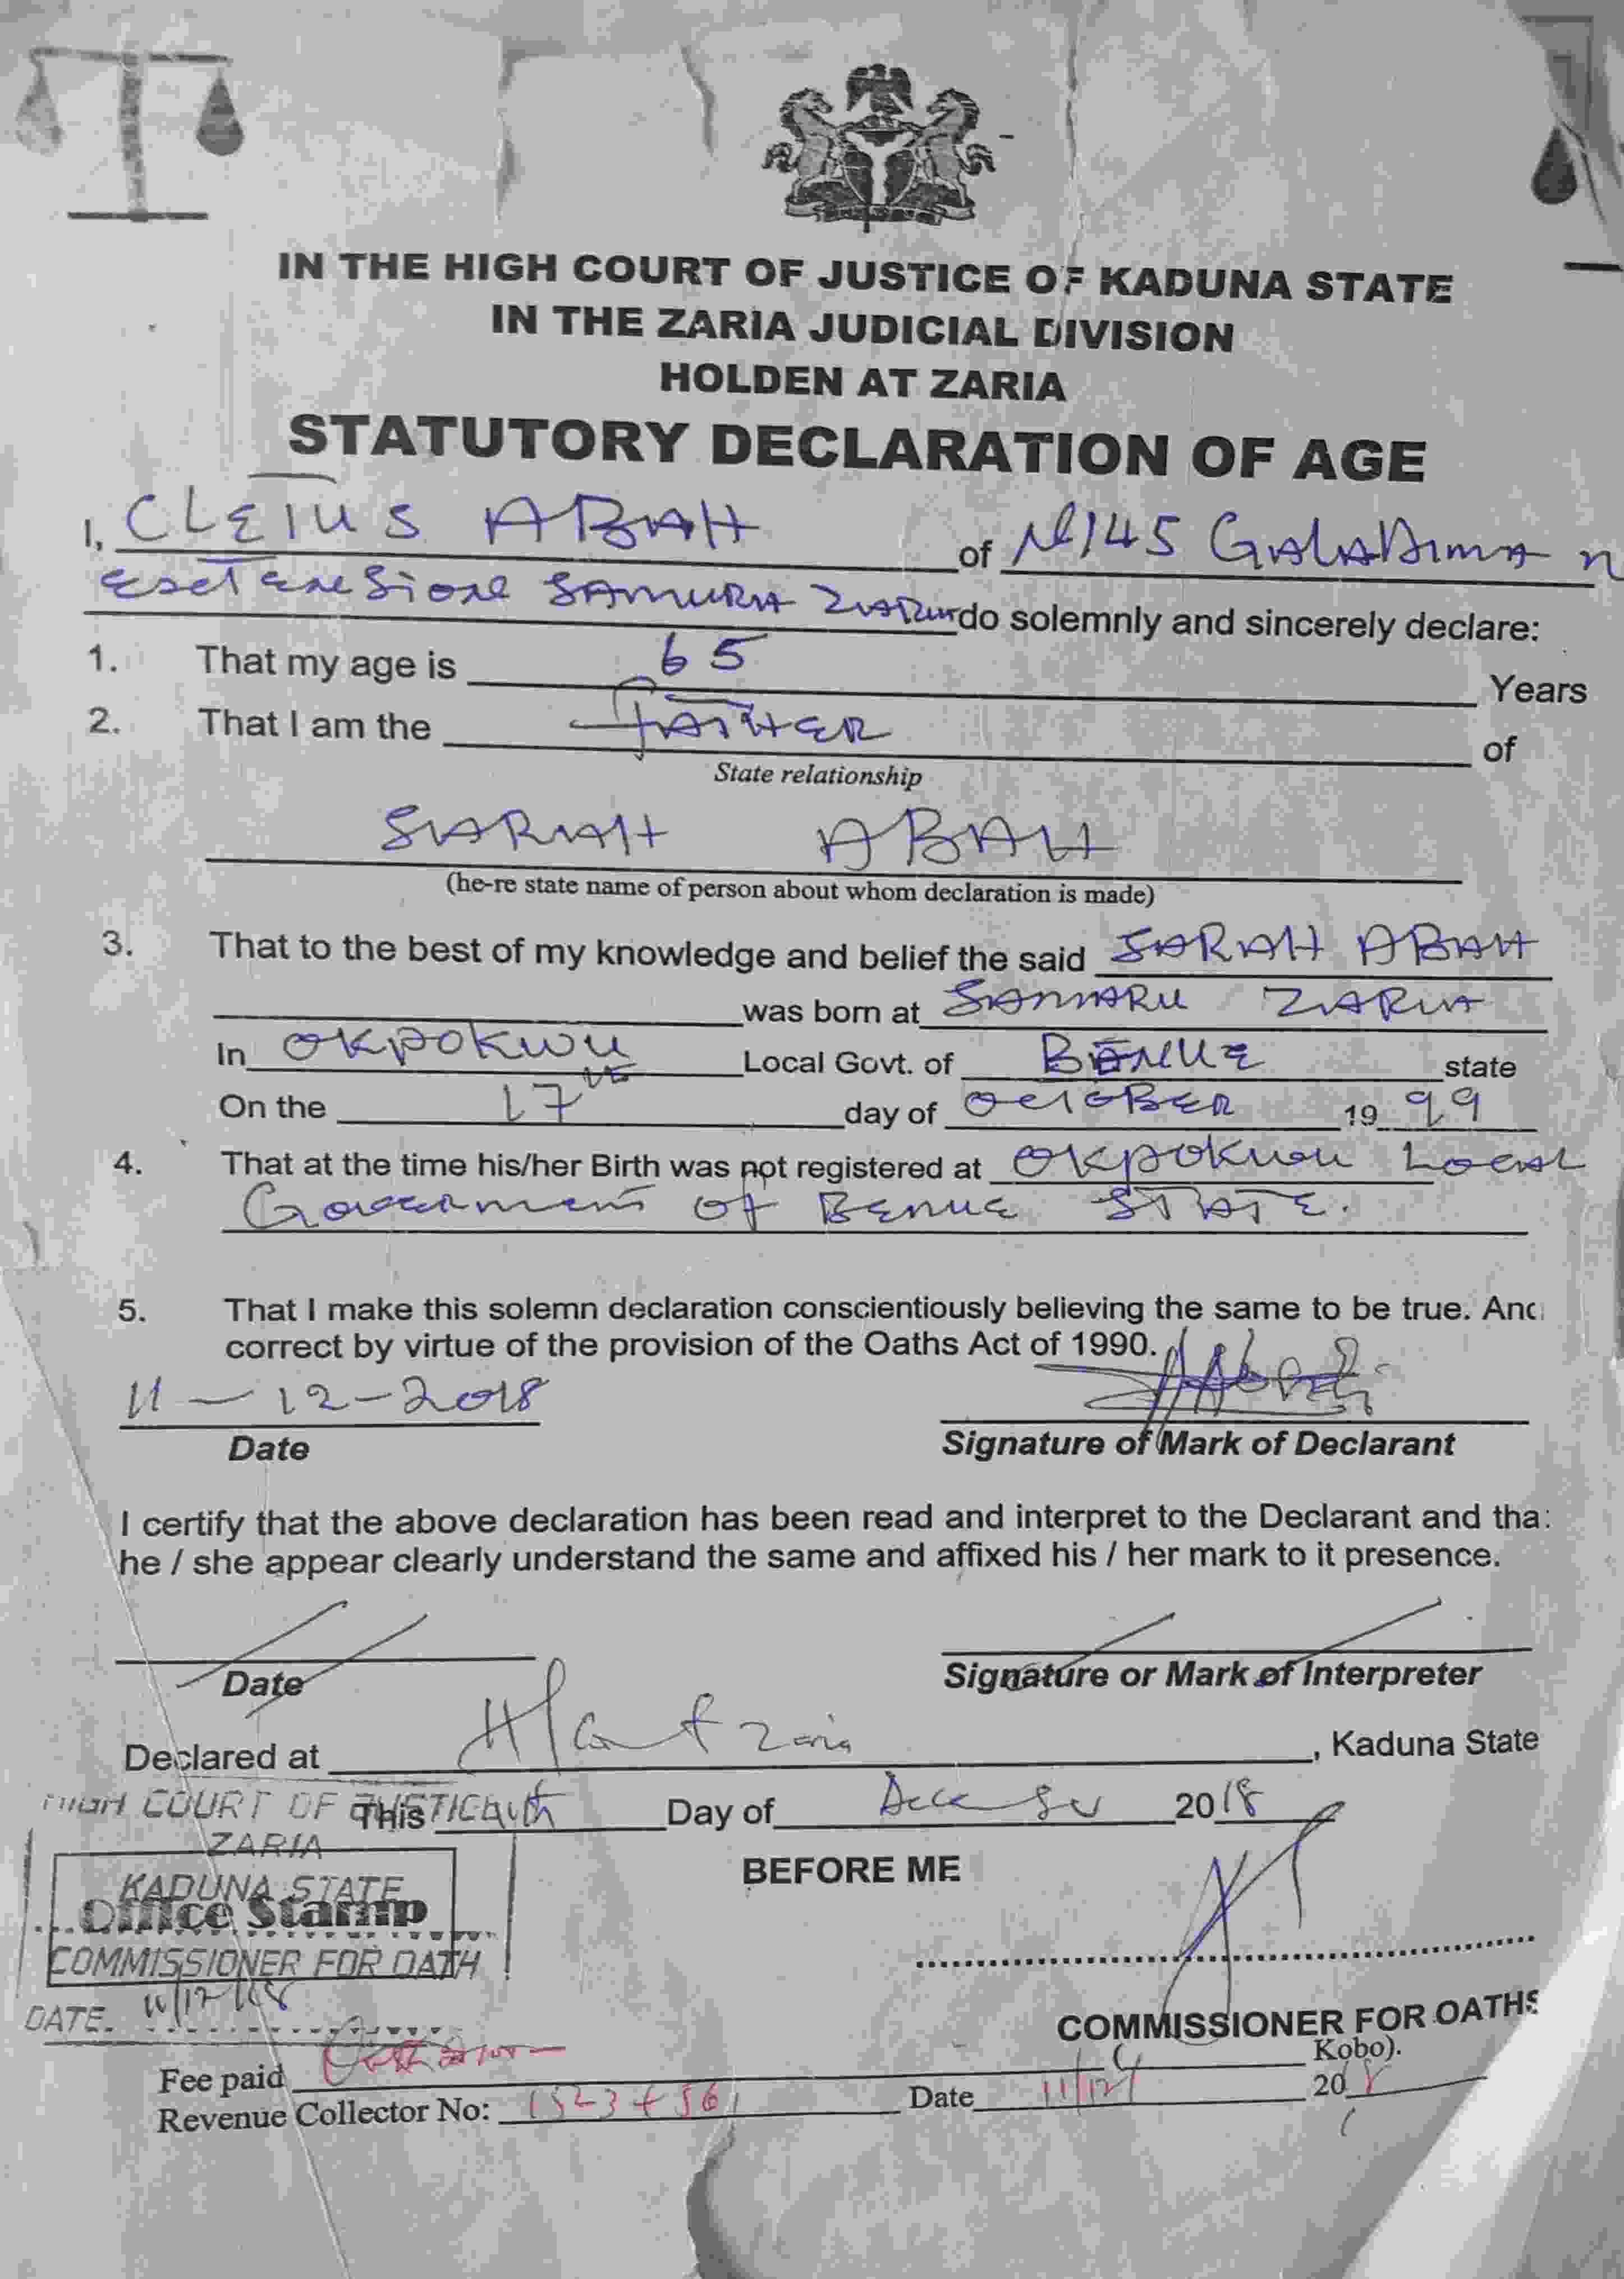 IN THE HIGH COURT OF JUSTICE OF KADUNA STATE
IN THE ZARIA JUDICIAL DIVISION
HOLDEN AT ZARIA
STATUTORY DECLARATION OF AGE
I, CLETUS ABAH of No 145 GALADIMA
SAMURA do solemnly and sincerely declare:
1. That my age is 65 Years
2. That I am the FATHER of
State relationship
SARAH ABAH
(he-re state name of person about whom declaration is made)
3. That to the best of my knowledge and belief the said SARAH ABAH
was born at SAMARU ZARIA
In OKPOKWU Local Govt. of BENUE state
On the 17th day of OCTOBER 1999
4. That at the time his/her Birth was not registered at OKPOKWU LOCAL
Government OF BENUE STATE.
5. That I make this solemn declaration conscientiously believing the same to be true. And
correct by virtue of the provision of the Oaths Act of 1990.
11-12-2018
Date Signature of Mark of Declarant
I certify that the above declaration has been read and interpret to the Declarant and that
he / she appear clearly understand the same and affixed his / her mark to it presence.
Date Signature or Mark of Interpreter
Declared at H/Court Zaria, Kaduna State
HIGH COURT OF JUSTICE
This 11th Day of December 2018
ZARIA
BEFORE ME
KADUNA STATE
Office Stamp
COMMISSIONER FOR OATH
DATE. 11/12/18
COMMISSIONER FOR OATHS
Fee paid Kobo).
Revenue Collector No: Date 11/12/ 2018